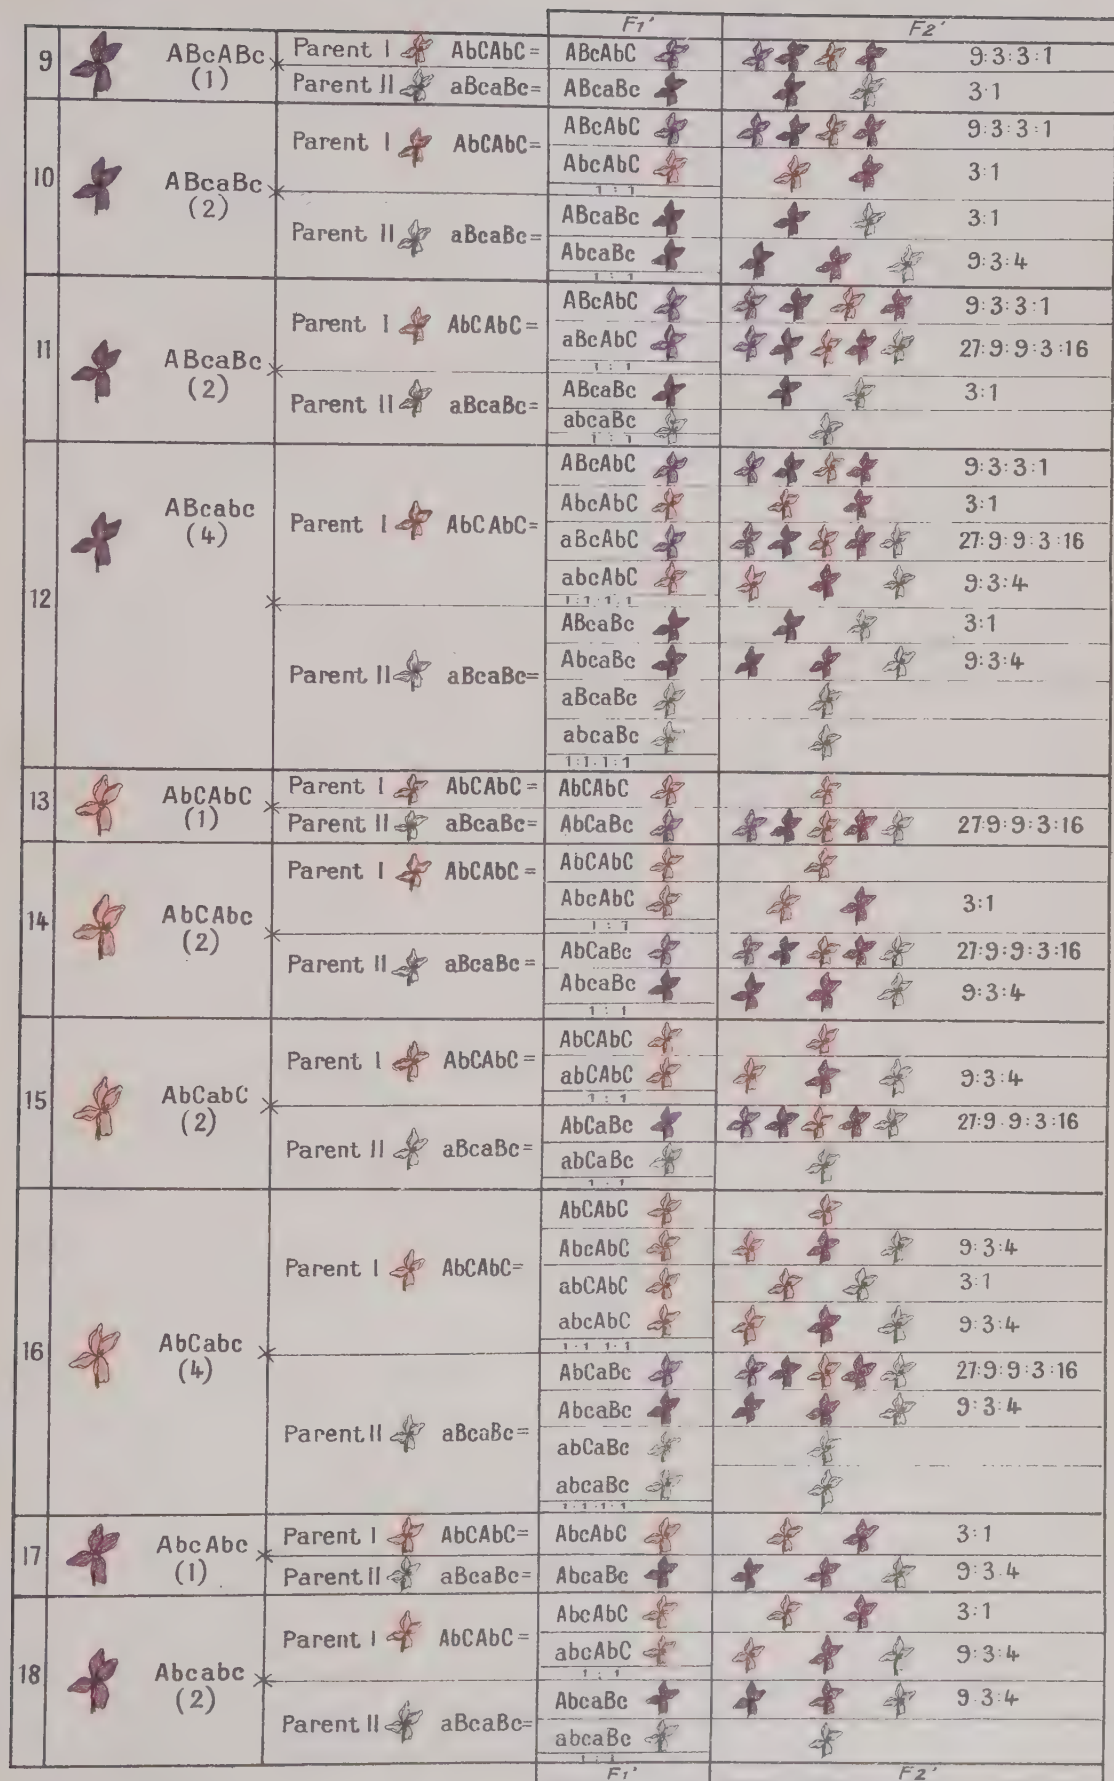 F1' F2'
9 ABcABc Parent I AbCAbC= ABcAbC 9:3:3:1
(1) Parent II aBcaBc= ABcaBc 3:1
10 ABcaBc Parent I AbCAbC= ABcAbC 9:3:3:1
(2) AbcAbC 3:1
1:1
Parent II aBcaBc= ABcaBc 3:1
AbcaBc 9:3:4
1:1
11 ABcaBc Parent I AbCAbC= ABcAbC 9:3:3:1
(2) aBcAbC 27:9:9:3:16
1:1
Parent II aBcaBc= ABcaBc 3:1
abcaBc
1:1
12 ABcabc Parent I AbCAbC= ABcAbC 9:3:3:1
(4) AbcAbC 3:1
aBcAbC 27:9:9:3:16
abcAbC 9:3:4
1:1:1:1
Parent II aBcaBc= ABcaBc 3:1
AbcaBc 9:3:4
aBcaBc
abcaBc
1:1:1:1
13 AbCAbC Parent I AbCAbC= AbCAbC
(1) Parent II aBcaBc= AbCaBc 27:9:9:3:16
14 AbCAbc Parent I AbCAbC= AbCAbC
(2) AbcAbC 3:1
1:1
Parent II aBcaBc= AbCaBc 27:9:9:3:16
AbcaBc 9:3:4
1:1
15 AbCabC Parent I AbCAbC= AbCAbC
(2) abCAbC 9:3:4
1:1
Parent II aBcaBc= AbCaBc 27:9:9:3:16
abCaBc
1:1
16 AbCabc Parent I AbCAbC= AbCAbC
(4) AbcAbC 9:3:4
abCAbC 3:1
abcAbC 9:3:4
1:1:1:1
Parent II aBcaBc= AbCaBc 27:9:9:3:16
AbcaBc 9:3:4
abCaBc
abcaBc
1:1:1:1
17 AbcAbc Parent I AbCAbC= AbcAbC 3:1
(1) Parent II aBcaBc= AbcaBc 9:3:4
18 Abcabc Parent I AbCAbC= AbcAbC 3:1
(2) abcAbC 9:3:4
1:1
Parent II aBcaBc= AbcaBc 9:3:4
abcaBc
1:1
F1' F2'